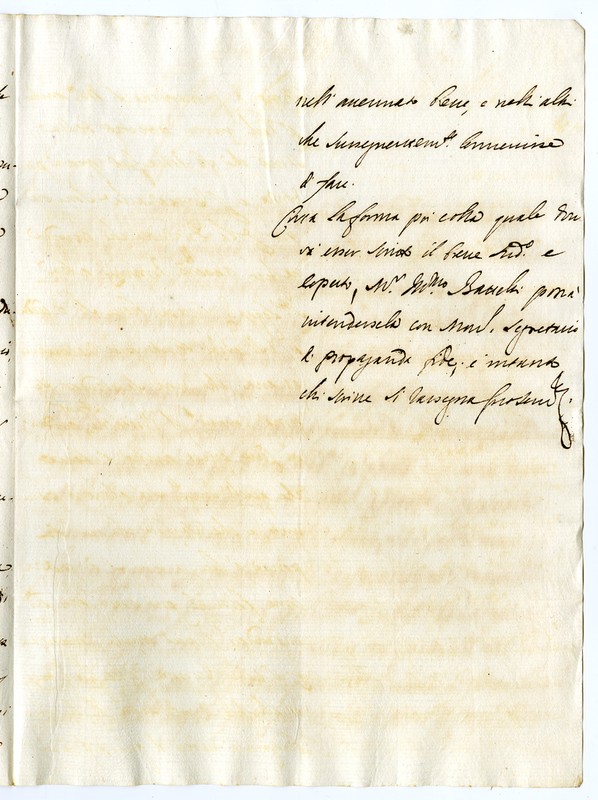 nell'accennato breve, e nelli altri
che susseguentem.te convenisse
di fare.
Circa la forma poi colla quale dov
rà esser scritto il breve sud.o e
coperto, M.r Ill.mo Battelli potrà
intendersela con Mons.r Segretario
di propaganda fide; e intanto
chi scrive si rassegna